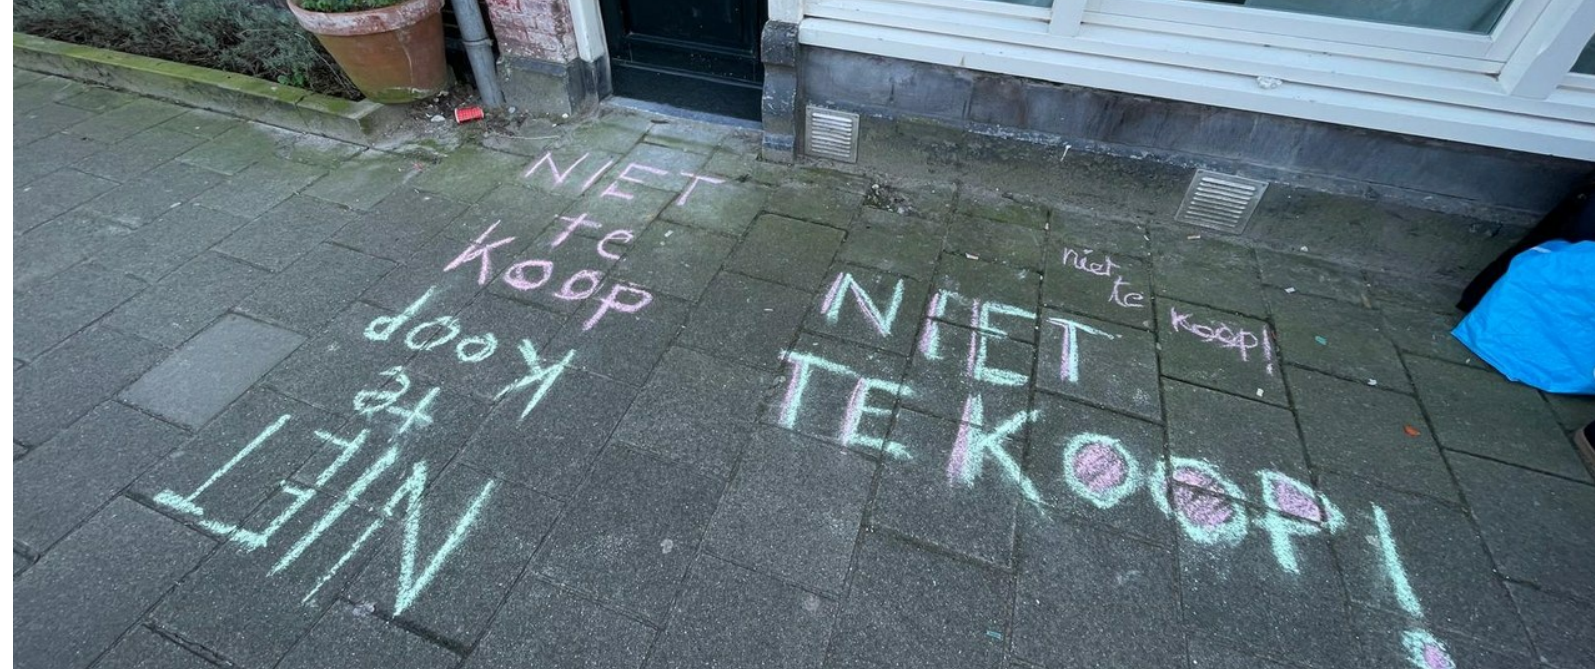 NIET
te
KOOP
NIET
te
KOOP
niet
te
koop!
NIET
TE KOOP!